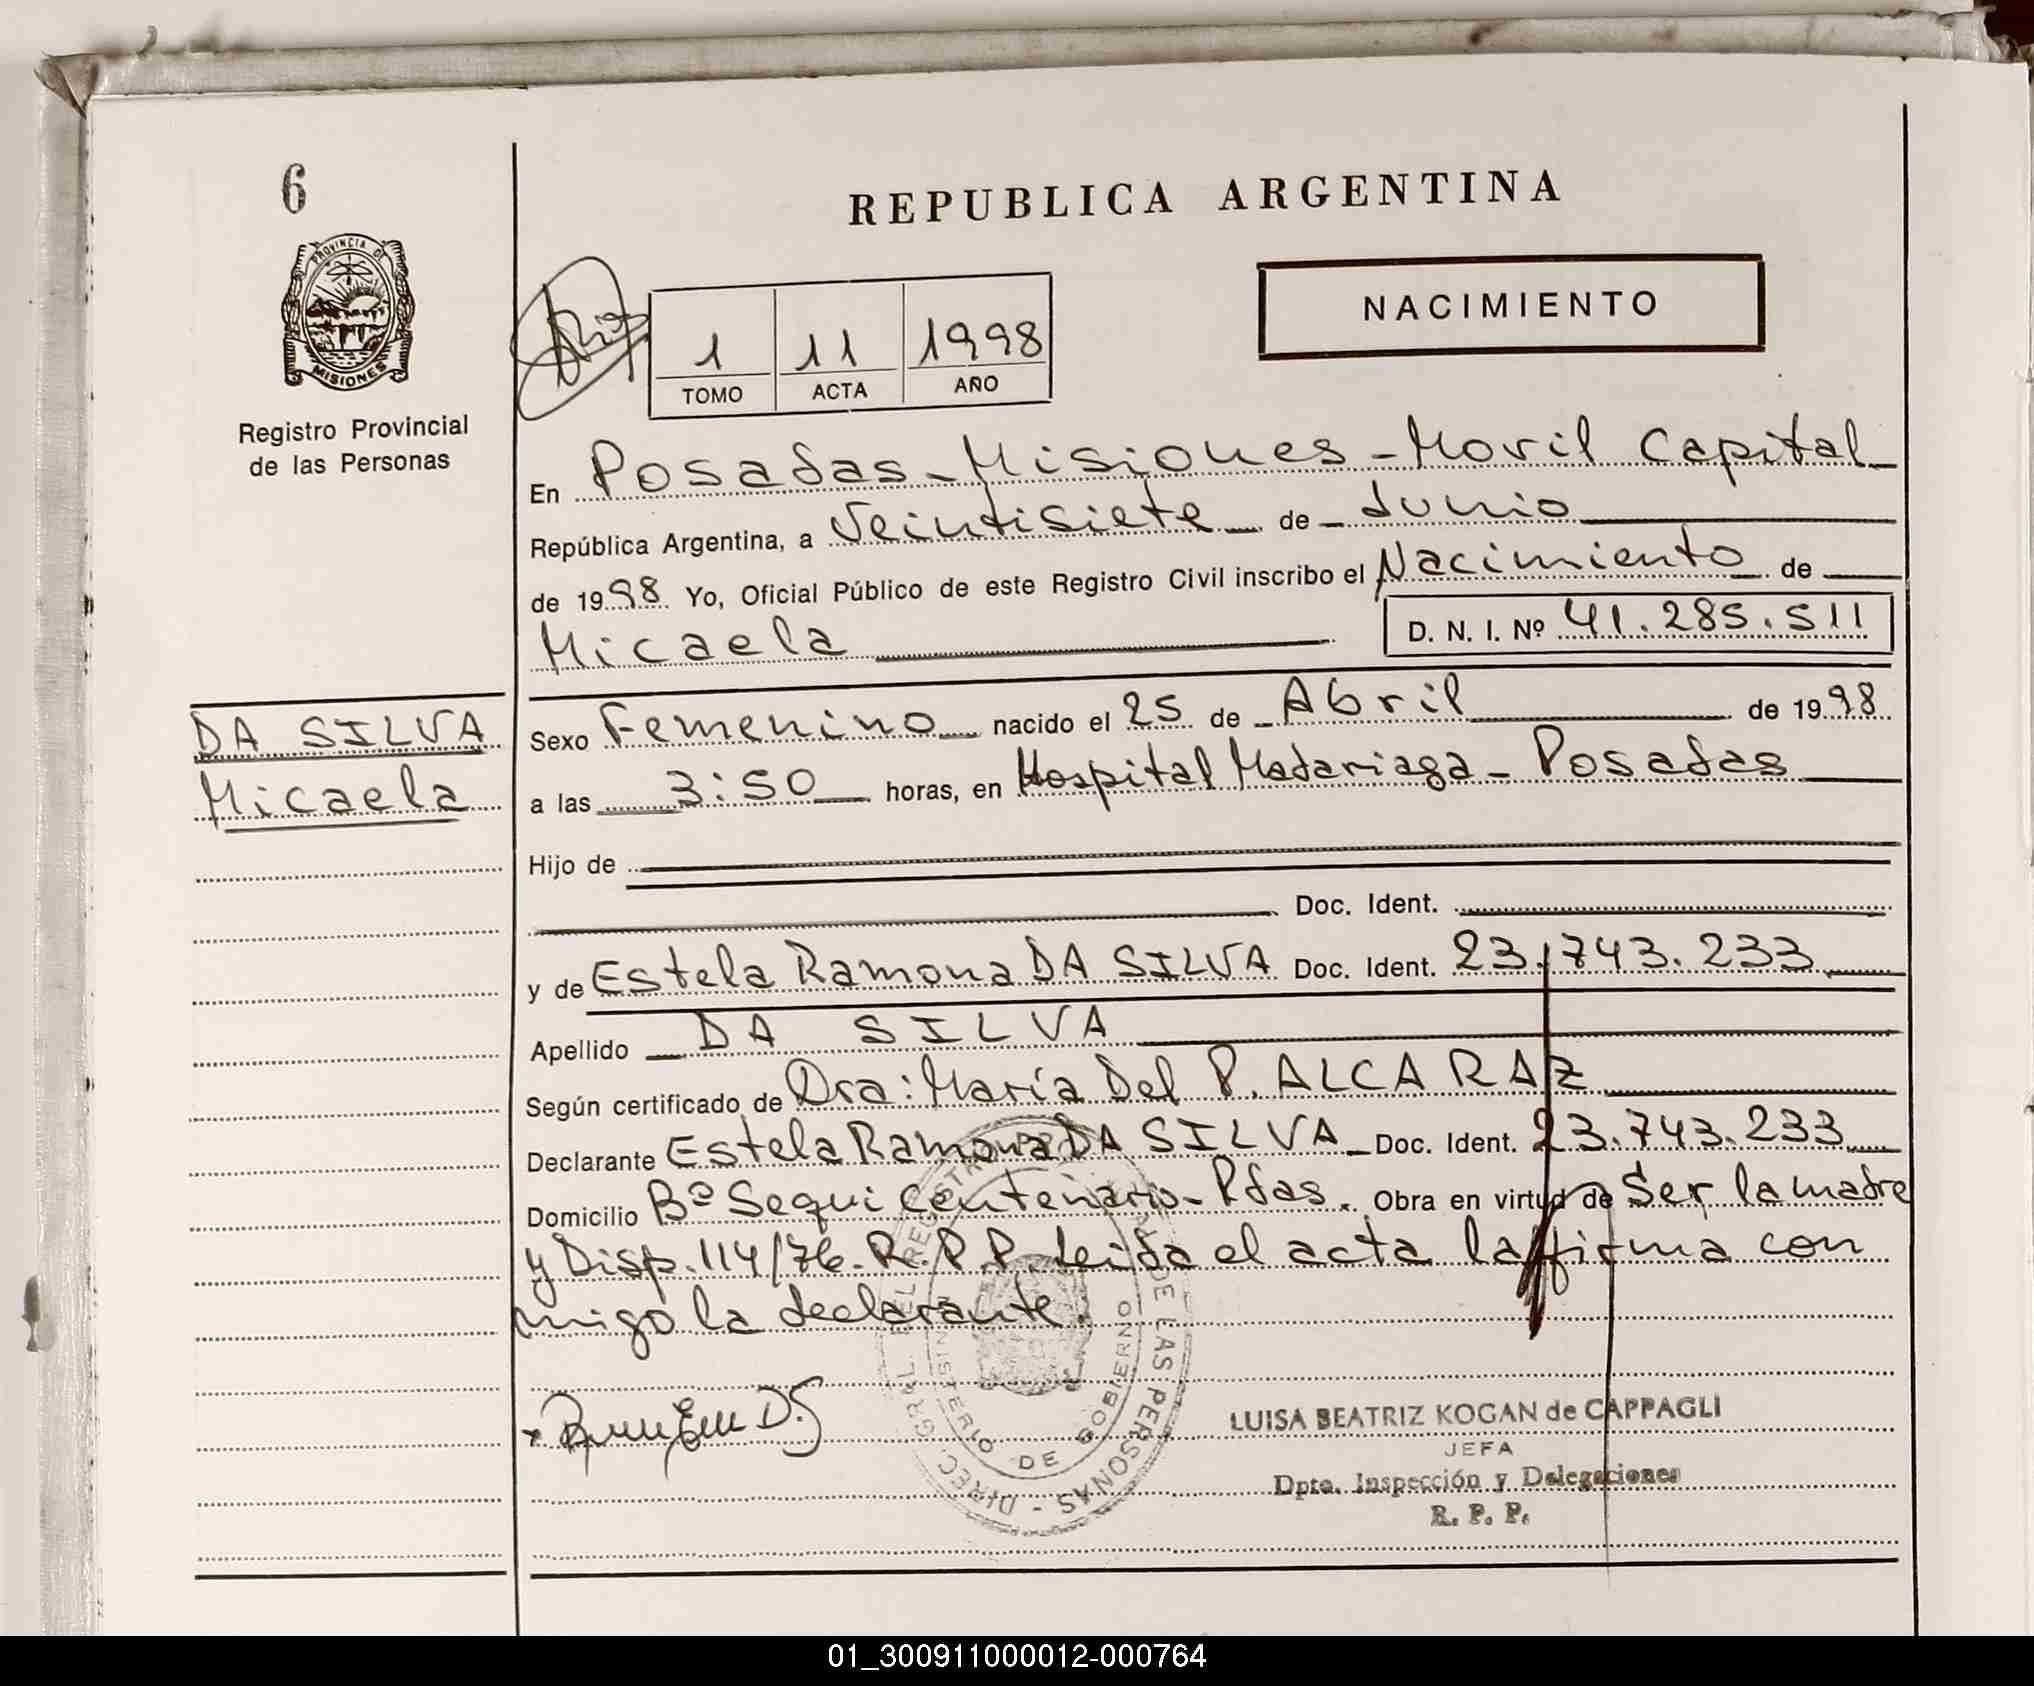 6
REPUBLICA ARGENTINA
NACIMIENTO
1 11 1998
TOMO ACTA AÑO
PROVINCIA DE
MISIONES
Registro Provincial
de las Personas
En Posadas - Misiones - Movil Capital
República Argentina, a Veintisiete de Junio
de 1998 Yo, Oficial Público de este Registro Civil inscribo el Nacimiento de
Micaela D. N. I. Nº 41.285.511
DA SILVA
Micaela
Sexo Femenino nacido el 25 de Abril de 1998
a las 3:50 horas, en Hospital Madariaga - Posadas
Hijo de
Doc. Ident.
y de Estela Ramona DA SILVA Doc. Ident. 23.743.233
Apellido DA SILVA
Según certificado de Dra: María Del P. ALCARAZ
Declarante Estela Ramona DA SILVA Doc. Ident. 23.743.233
Domicilio Bº Sequi Centenario - Pdas. Obra en virtud de Ser la madre
y Disp. 114/76. R.P.P. Leida el acta la firma con
migo la declarante.
LUISA BEATRIZ KOGAN de CAPPAGLI
JEFA
Dpto. Inspección y Delegaciones
R. P. P.
01_300911000012-000764